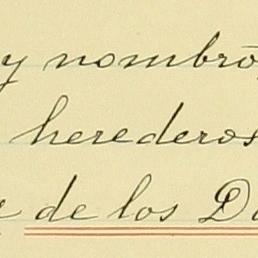 y nombró
herederos
de los